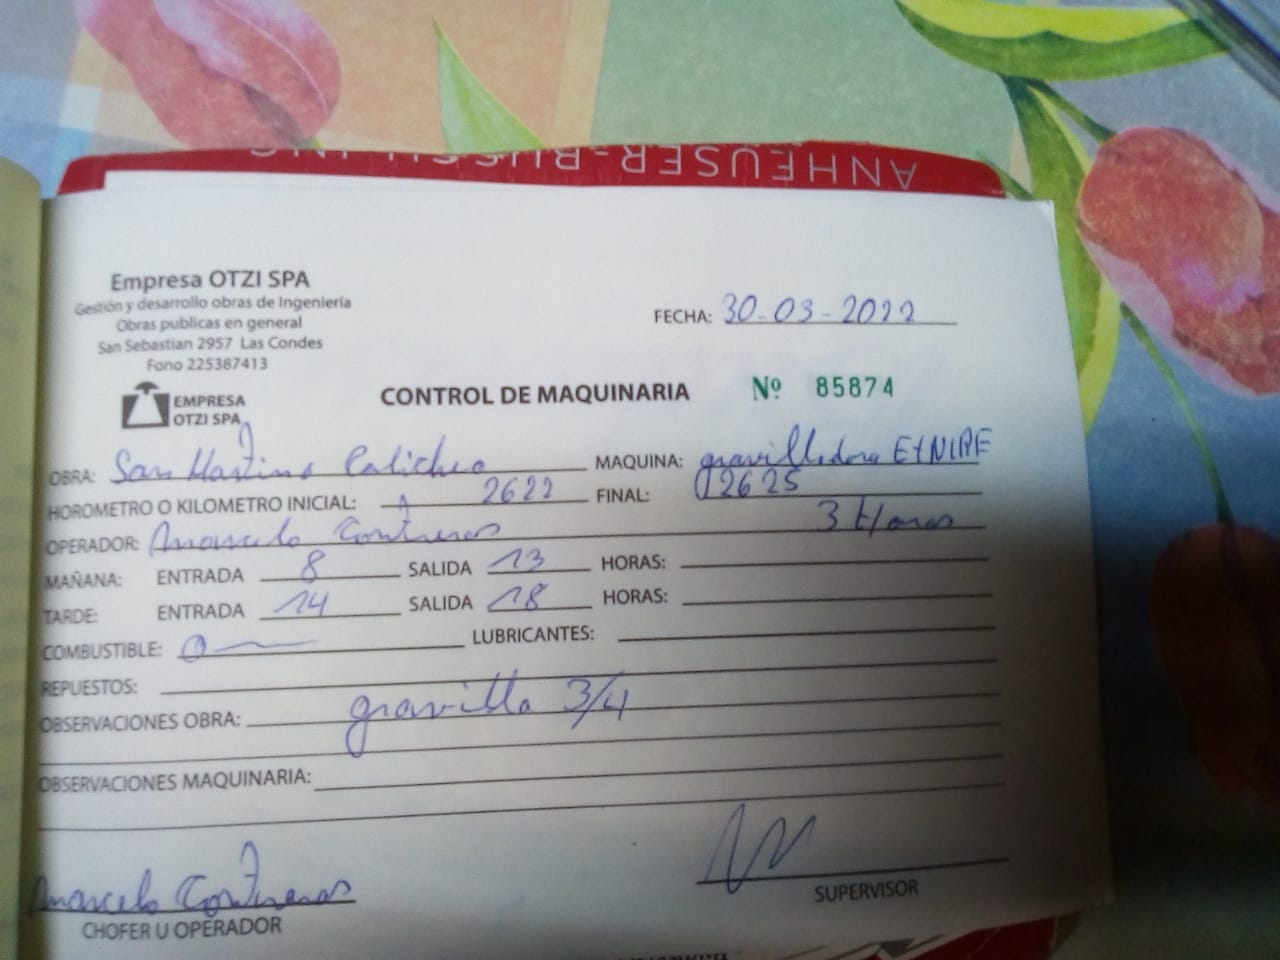 ANHEUSER-BUSCH, INC
Empresa OTZI SPA
Gestión y desarrollo obras de Ingeniería
Obras publicas en general
San Sebastian 2957 Las Condes
Fono 225387413
EMPRESA
OTZI SPA
FECHA: 30-03-2022
CONTROL DE MAQUINARIA Nº 85874
OBRA: San Martino MAQUINA: gravilladora
HOROMETRO O KILOMETRO INICIAL: 2622 FINAL: 2625
OPERADOR: Marcelo Contreras 3 Horas
MAÑANA: ENTRADA 8 SALIDA 13 HORAS:
TARDE: ENTRADA 14 SALIDA 18 HORAS:
COMBUSTIBLE: 0 LUBRICANTES:
REPUESTOS:
OBSERVACIONES OBRA: gravilla 3/4
OBSERVACIONES MAQUINARIA:
Marcelo Contreras
CHOFER U OPERADOR SUPERVISOR